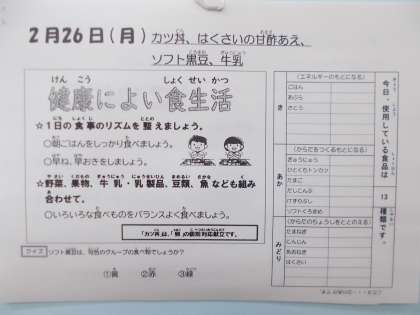 2月26日(月) カツ丼、はくさいの甘酢あえ、
ソフト黒豆、牛乳
けんこう しょくせいかつ
健康によい食生活
☆1日の食事のリズムを整えましょう。
○朝ごはんをしっかり食べましょう。
○早ね、早おきをしましょう。
☆野菜、果物、牛乳・乳製品、豆類、魚なども組み
合わせて。
○いろいろな食べものをバランスよく食べましょう。
「カツ丼」は、「卵」の個別対応献立です。
クイズ ソフト黒豆は、何色のグループの食べ物でしょうか?
①黄 ②赤 ③緑
今日、使用している食品は 13 種類です。
き
(エネルギーのもとになる)
ごはん
あぶら
さとう
あか
(からだをつくるもとになる)
ぎゅうにゅう
ひとくちトンカツ
たまご
だしこんぶ
けずりぶし
ソフトくろまめ
みどり
(からだのちょうしをととのえる)
たまねぎ
にんじん
あおねぎ
はくさい